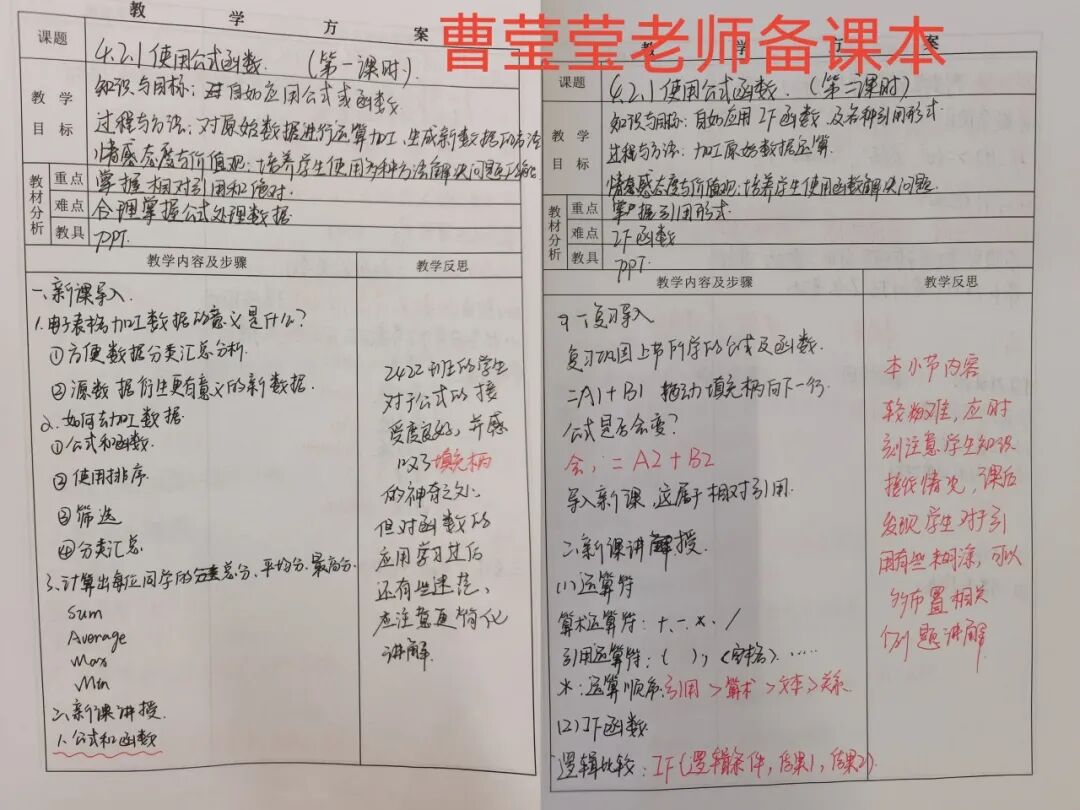 曹莹莹老师备课本
教 学 方 案
课题
4.2.1 使用公式函数. (第一课时).
教 学 目 标
知识与目标: 进自如应用公式或函数.
过程与方法: 对原始数据进行运算加工、生成新数据的方法
情感态度与价值观: 培养学生使用多种方法解决问题的能力
教材分析
重点
掌握相对引用和绝对.
难点
合理掌握公式处理数据.
教具
PPT.
教学内容及步骤
教学反思
一、新课导入.
1.电子表格加工数据的意义是什么?
①方便数据分类汇总分析.
②源数据衍生更有意义的新数据.
2.如何加工数据
①公式和函数.
②使用排序.
③筛选
④分类汇总
3.计算出每位同学的总分、平均分、最高分.
Sum
Average
Max
Min
二、新课讲授.
1.公式和函数
2422班的学生
对于公式的接
受度良好,并感
叹了填充柄
的神奇之处.
但对函数的
应用学习其后
还有些迷茫、
应注意更简化
讲解.
教 学 方 案
课题
4.2.1 使用公式函数. (第二课时)
教 学 目 标
知识与目标: 自如应用IF函数及各种引用形式
过程与方法: 加工原始数据运算.
情感态度与价值观: 培养学生使用函数解决问题.
教材分析
重点
掌握引用形式.
难点
IF函数
教具
PPT.
教学内容及步骤
教学反思
一复习导入
复习巩固上节所学的公式及函数.
=A1+B1 拖动填充柄向下一行
公式是否会变?
会, =A2+B2
导入新课, 这属于相对引用.
二、新课讲解授.
(1)运算符
算术运算符: +、-、*、/
引用运算符: ( ), , (空格)......
*: 运算顺序: 引用>算术>文本>关系.
(2)IF函数
逻辑比较: IF(逻辑条件, 结果1, 结果2)
本小节内容
较难, 应时
刻注意学生知识
接收情况, 课后
发现学生对于引
用有些糊涂, 可以
多布置相关
例题讲解